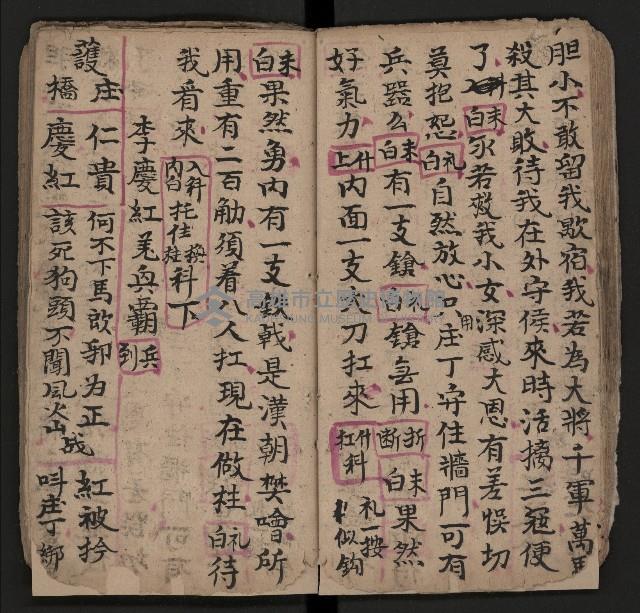 胆小不敢留我歇宿我若為大將千軍萬馬
殺其大敗待我在外守候來時活擒三冦使
了末白永若救我小女深感大恩有差悞切
莫抱恕礼白自然放心只用庄丁守住牆門可有
兵器么末白有一支鎗白鎗無用折断末白果然
好氣力什上內面一支大刀扛來什扛科礼一按似鈎
末白果然勇內有一支鉄戟是漢朝樊噲所
用重有二百觔須着人扛現在做拄礼白待
我看來入科內白托住換柱科下
李慶紅羌兵霸兵到
庄仁貴何不下馬改邪为正紅被擒
護橋慶紅該死狗頭不聞風火山战叫庄丁綁
高雄市立歷史博物館
KAOHSIUNG MUSEUM OF HISTORY